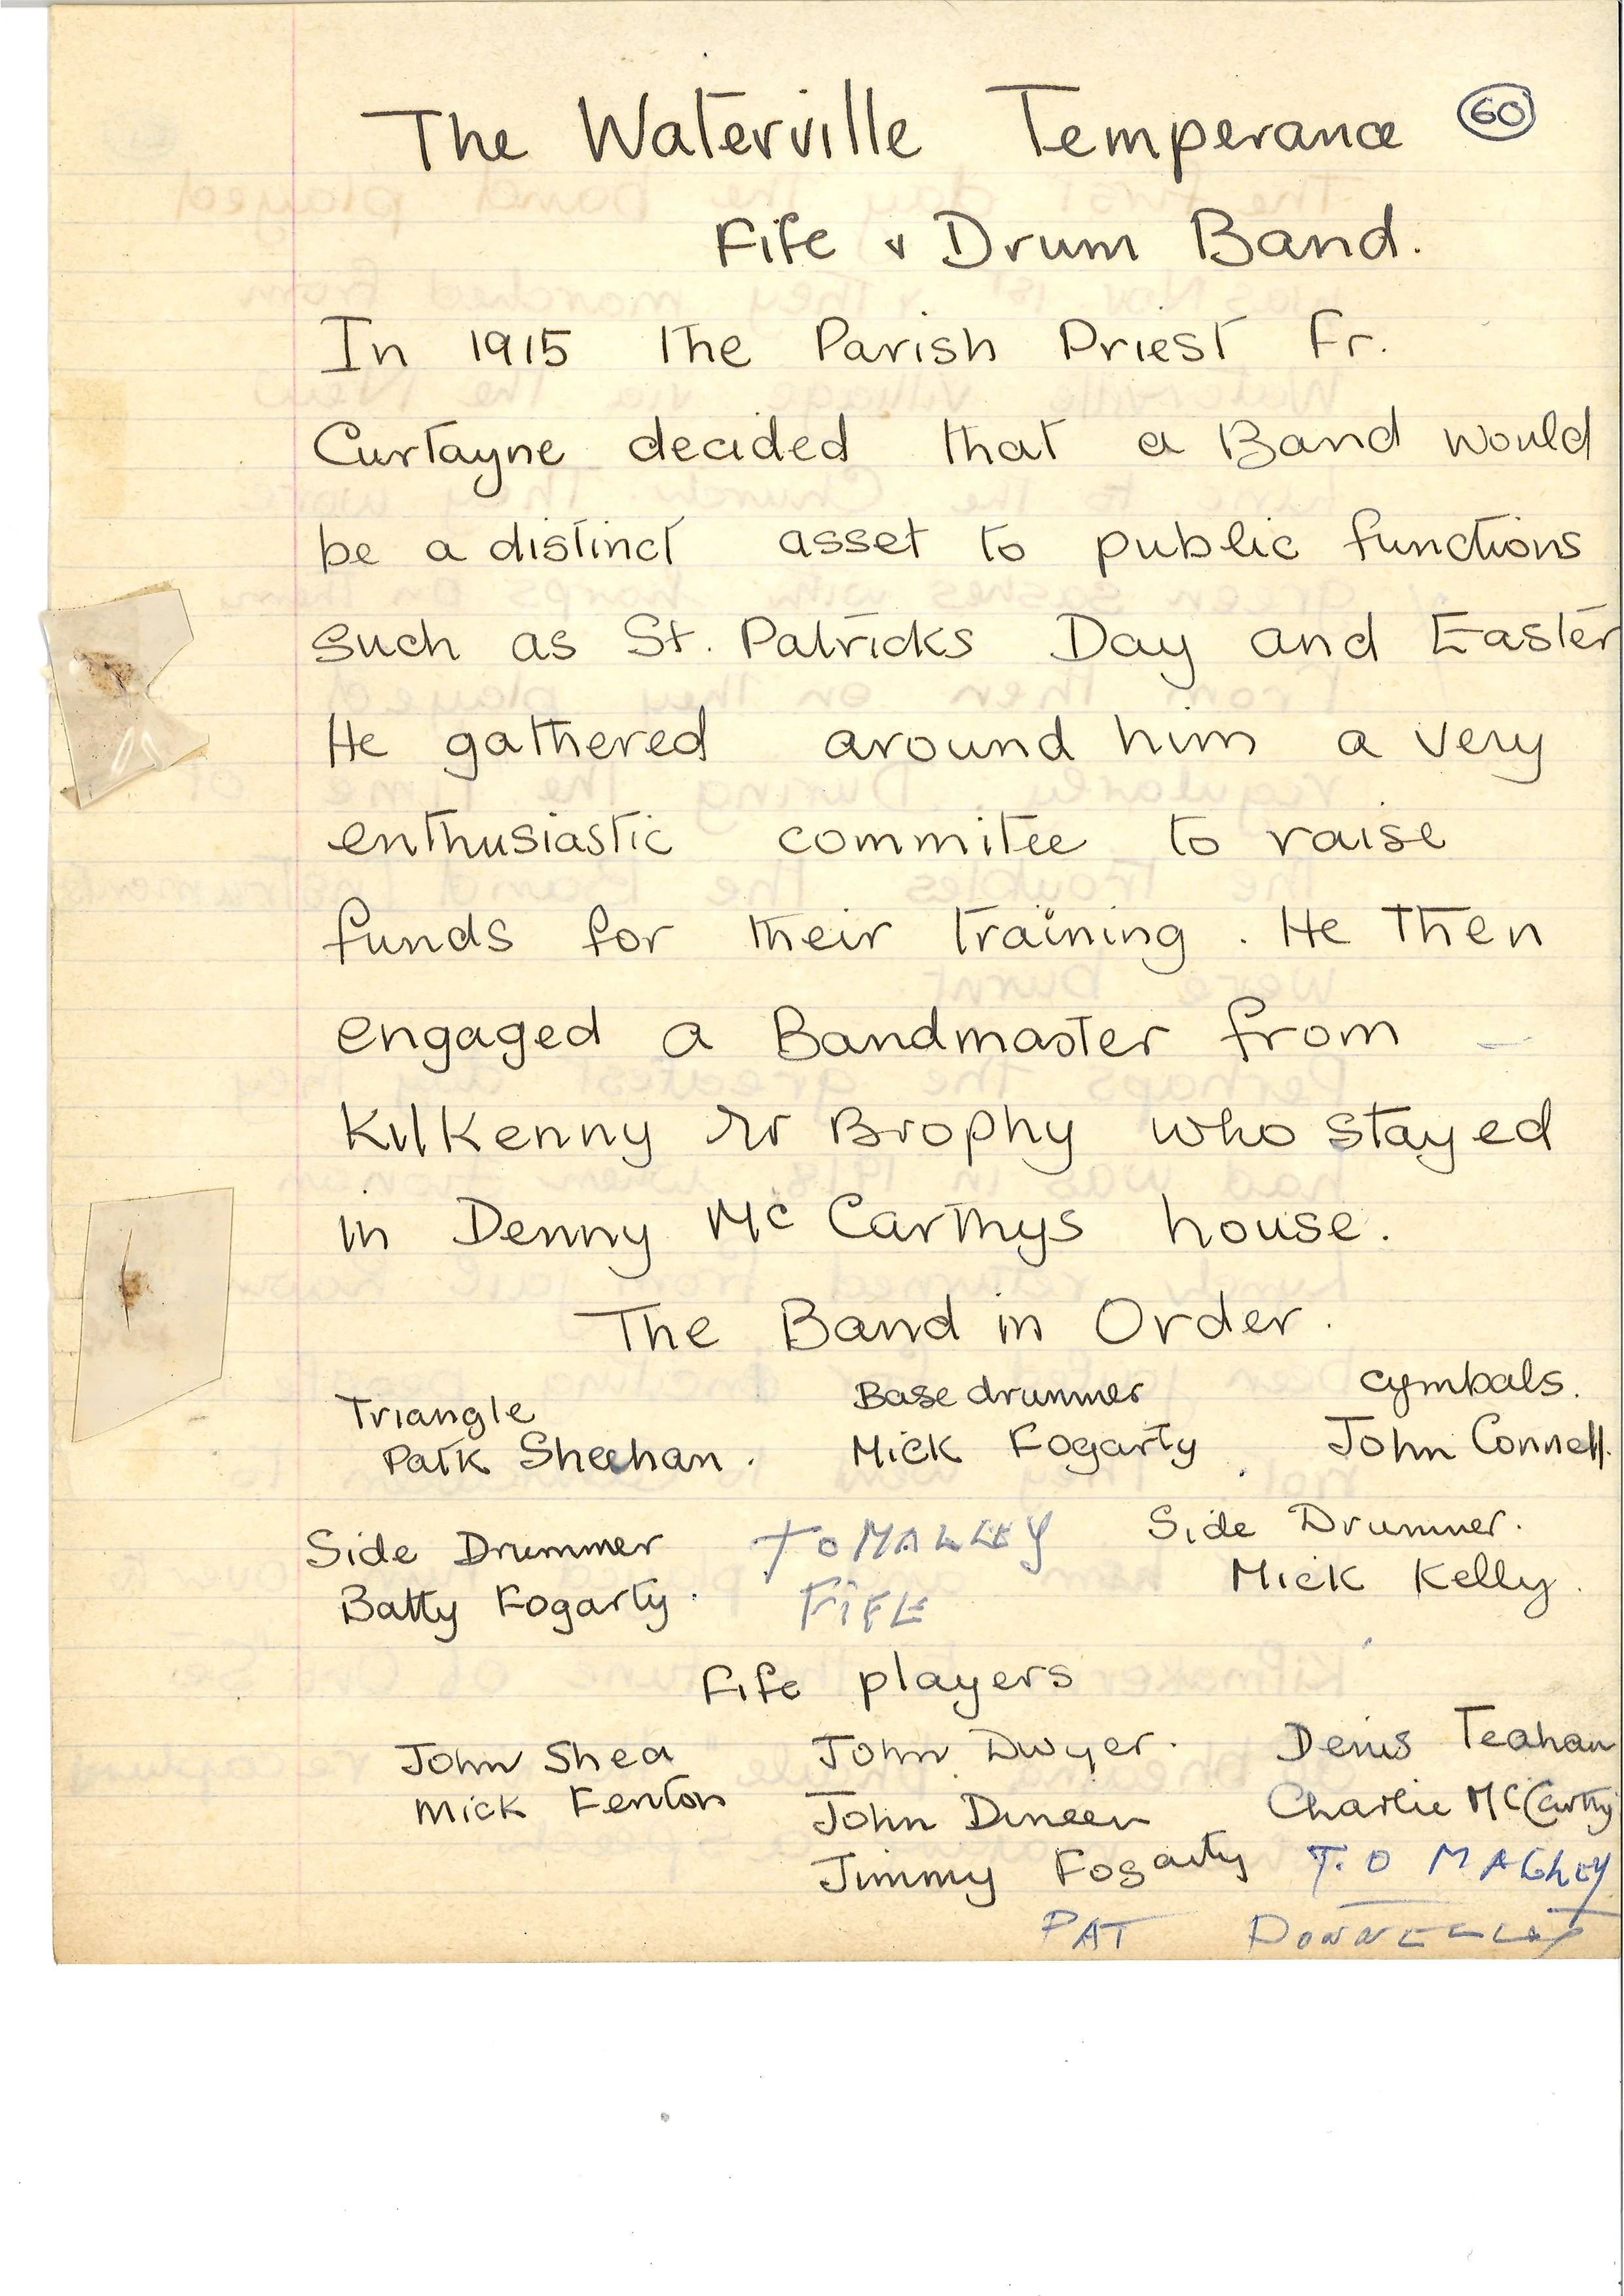 The Waterville Temperance 60
Fife & Drum Band.
In 1915 the Parish Priest Fr.
Curtayne decided that a Band would
be a distinct asset to public functions
such as St. Patricks Day and Easter
He gathered around him a very
enthusiastic commitee to raise
funds for their training. He then
engaged a Bandmaster from
Kilkenny Mr Brophy who stayed
in Denny Mc Carthys house.
The Band in Order.
Triangle Base drummer cymbals.
Patk Sheehan. Mick Fogarty John Connell.
Side Drummer T O MALLEY Side Drummer.
Batty Fogarty. FIFE Mick Kelly.
Fife players
John Shea John Dwyer. Denis Teahan
Mick Fenton John Dineen Charlie McCarthy
Jimmy Fogarty T. O MALLEY
PAT DONNELLY